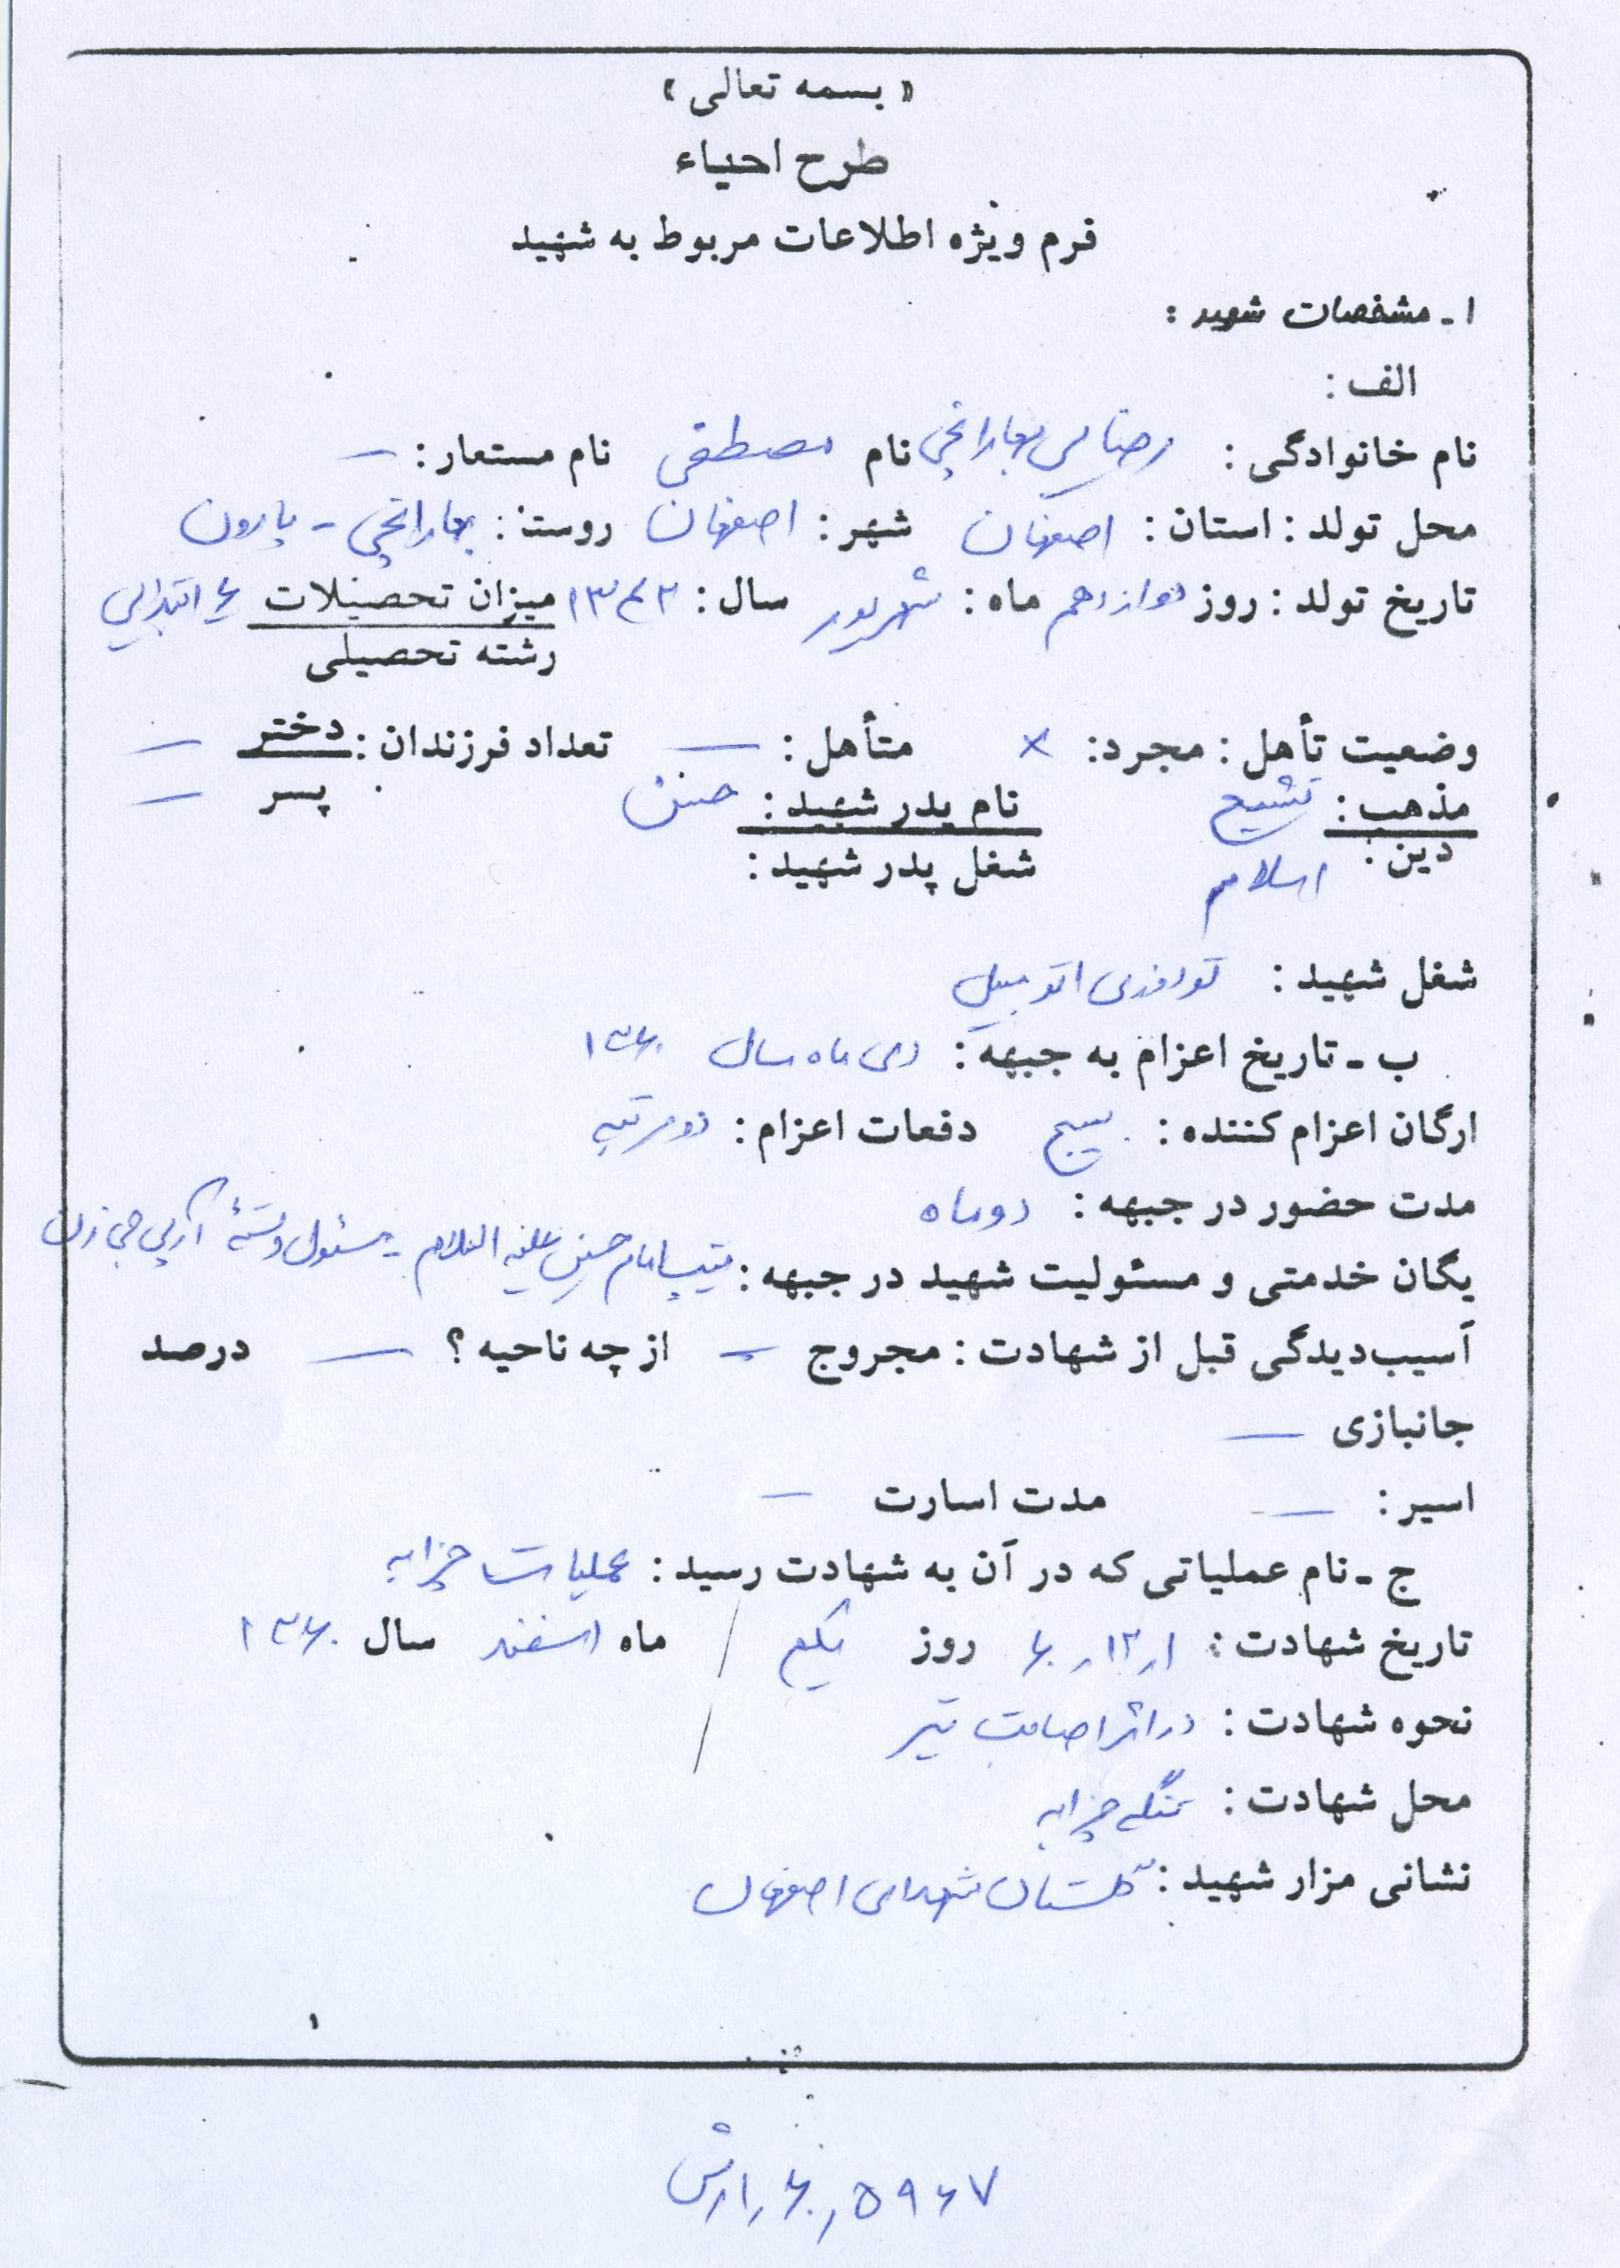 « بسمه تعالی »
طرح احیاء
فرم ویژه اطلاعات مربوط به شهید
۱ - مشخصات شهید :
الف :
نام خانوادگی : رضایی بهارانچی نام مصطفی نام مستعار : —
محل تولد : استان : اصفهان شهر : اصفهان روستا : بهارانچی - پارون
تاریخ تولد : روز دوازدهم ماه : شهریور سال : ۱۳۴۲ میزان تحصیلات ۶ ابتدایی
رشته تحصیلی
وضعیت تأهل : مجرد : × متأهل : — تعداد فرزندان : دختر —
پسر —
مذهب : تشیع نام پدر شهید : حسن
دین : اسلام شغل پدر شهید :
شغل شهید : تودوزی اتومبیل
ب - تاریخ اعزام به جبهه : دی ماه سال ۱۳۶۰
ارگان اعزام کننده : بسیج دفعات اعزام : دو مرتبه
مدت حضور در جبهه : دو ماه
یگان خدمتی و مسئولیت شهید در جبهه : تیپ امام حسین علیه السلام - مسئول دستۀ آرپی جی زن
آسیب‌دیدگی قبل از شهادت : مجروح — از چه ناحیه ؟ — درصد
جانبازی —
اسیر : — مدت اسارت —
ج - نام عملیاتی که در آن به شهادت رسید : عملیات چزابه
تاریخ شهادت : ۶۰٫۱۲٫۱ روز یکم / ماه اسفند سال ۱۳۶۰
نحوه شهادت : در اثر اصابت تیر
محل شهادت : تنگه چزابه
نشانی مزار شهید : گلستان شهدای اصفهان
۱